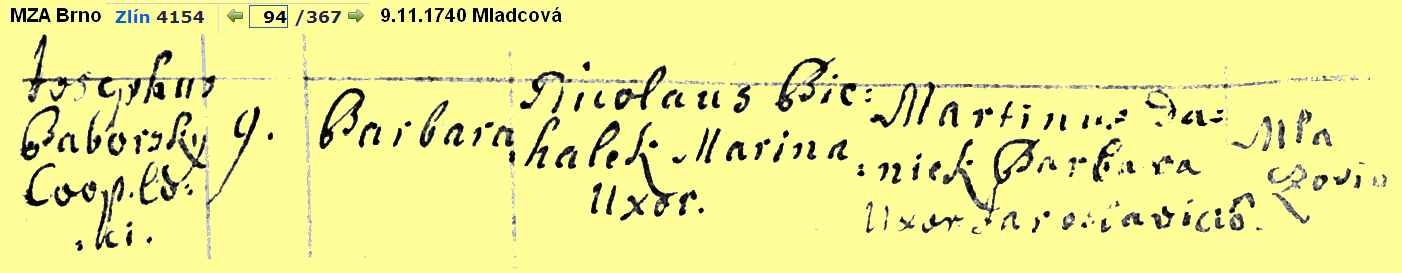 MZA Brno Zlín 4154 94 /367 9.11.1740 Mladcová
Josephus
Baborsky
Coop.
:ki.
9.
Barbara
Nicolaus Bie:
:halek Marina
Uxor.
Martinus Da:
:niek Barbara
Uxor Jaroslavicib.
Mla